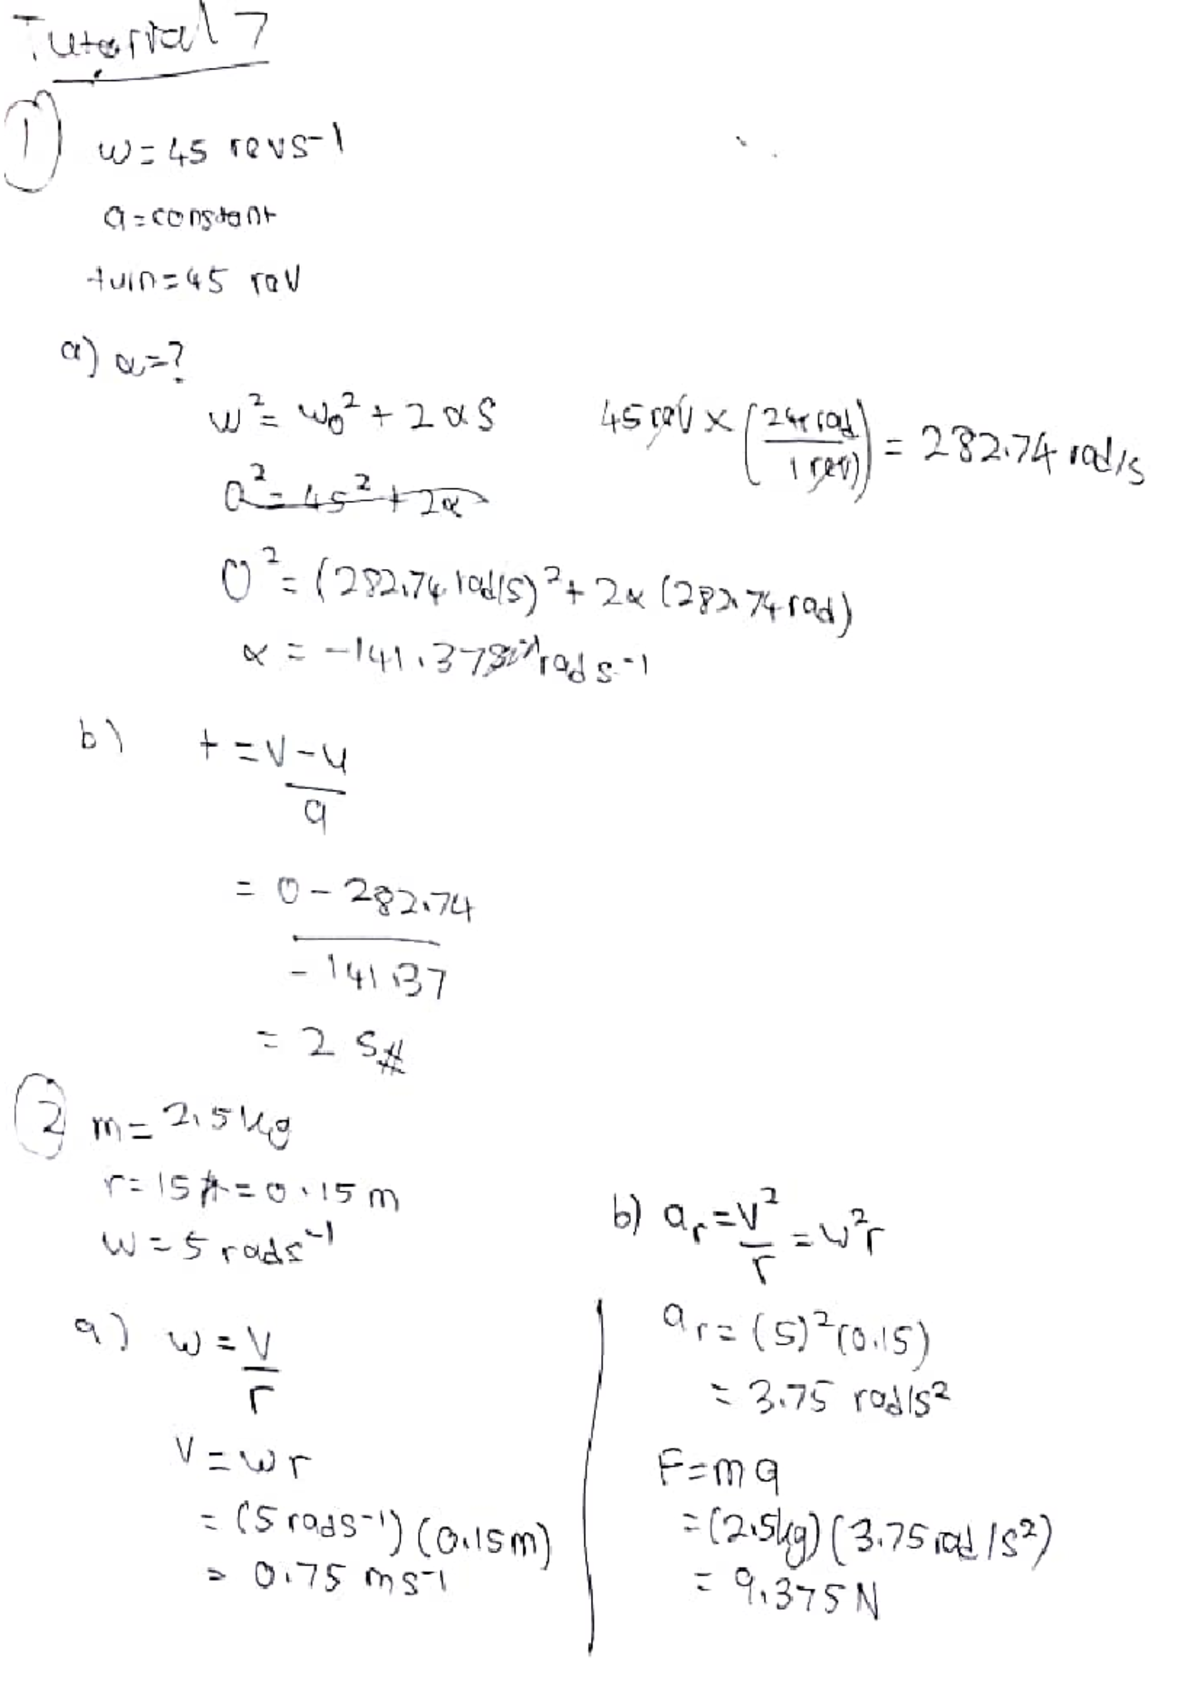 Tutorial 7
1) w = 45 revs-1
a = constant
turn = 45 rev
a) α = ?
w² = w₀² + 2αS
45 rev × (2π rad / 1 rev) = 282.74 rad/s
0² = 45² + 2α
0² = (282.74 rad/s)² + 2α (282.74 rad)
α = -141.37 rad s-1
b) t = v - u / a
= 0 - 282.74 / -141.37
= 2 s#
2 m = 2.5 kg
r = 15 = 0.15 m
w = 5 rads-1
a) w = v / r
v = wr
= (5 rads-1) (0.15m)
= 0.75 ms-1
b) ar = v² / r = w²r
ar = (5)² (0.15)
= 3.75 rad/s²
F = ma
= (2.5kg) (3.75 rad/s²)
= 9.375 N